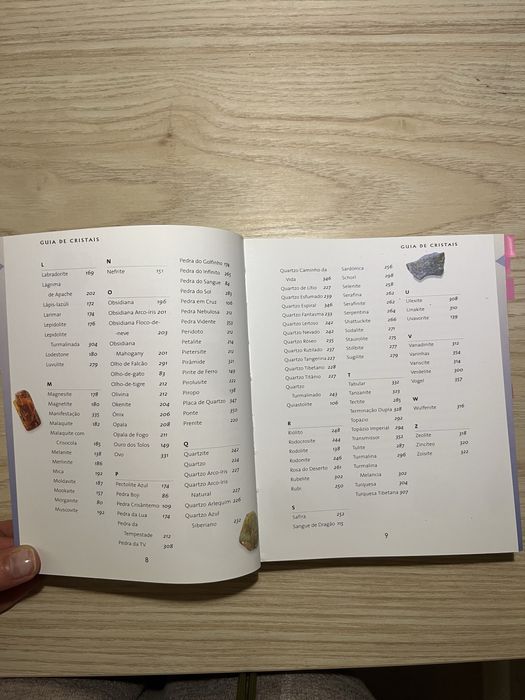 GUIA DE CRISTAIS
L
Labradorite 169
Lágrima
de Apache 202
Lápis-lazúli 172
Larimar 174
Lepidolite 176
Lepidolite
Turmalinada 304
Lodestone 180
Luvulite 279
M
Magnesite 178
Magnetite 180
Manifestação 335
Malaquite 182
Malaquite com
Crisocola 185
Melanite 138
Merlinite 186
Mica 192
Moldavite 187
Mookaite 157
Morganite 80
Muscovite 192
N
Nefrite 151
O
Obsidiana 196
Obsidiana Arco-íris 201
Obsidiana Floco-de-
-neve 203
Obsidiana
Mahogany 201
Olho de Falcão 291
Olho-de-gato 83
Olho-de-tigre 212
Olivina 212
Okenite 204
Ónix 206
Opala 208
Opala de Fogo 211
Ouro dos Tolos 149
Ovo 331
P
Pectolite Azul 174
Pedra Boji 86
Pedra Crisântemo 109
Pedra da Lua 174
Pedra da
Tempestade 212
Pedra da TV 308
Pedra do Golfinho 174
Pedra do Infinito 265
Pedra do Sangue 84
Pedra do Sol
Pedra em Cruz 106
Pedra Nebulosa 212
Pedra Vidente 352
Peridoto 212
Petalite 214
Pietersite 212
Pirâmide 321
Pirite de Ferro 149
Pirolusite 222
Piropo 138
Placa de Quartzo 347
Ponte 350
Prenite 220
Q
Quartzite 242
Quartzo 224
Quartzo Arco-íris 227
Quartzo Arco-íris
Natural 227
Quartzo Arlequim 226
Quartzo Azul
Siberiano 232
8
GUIA DE CRISTAIS
Quartzo Caminho da
Vida 346
Quartzo de Lítio 227
Quartzo Esfumado 239
Quartzo Espiral 346
Quartzo Fantasma 233
Quartzo Leitoso 242
Quartzo Nevado 242
Quartzo Róseo 235
Quartzo Rutilado 237
Quartzo Tangerina 227
Quartzo Tibetano 228
Quartzo Titânio 227
Quartzo
Turmalinado 243
Quiastolite 106
R
Riólito 248
Rodocrosite 244
Rodolite 138
Rodonite 246
Rosa do Deserto 261
Rubelite 302
Rubi 250
S
Safira 252
Sangue de Dragão 115
Sardónica 256
Schorl 298
Selenite 258
Serafina 262
Serafinite 262
Serpentina 264
Shattuckite 266
Sodalite 271
Staurolite 275
Stilbite 277
Sugilite 279
T
Tabular 332
Tanzanite 323
Tectite 285
Terminação Dupla 328
Topázio 292
Topázio Imperial 294
Transmissor 352
Tulite 287
Turmalina 296
Turmalina
Melancia 302
Turquesa 304
Turquesa Tibetana 307
U
Ulexite 308
Unakite 310
Uvavorite 139
V
Vanadinite 312
Varinhas 354
Variscite 314
Verdelite 300
Vogel 357
W
Wulfenite 316
Z
Zeolite 318
Zincites 320
Zoisite 322
9